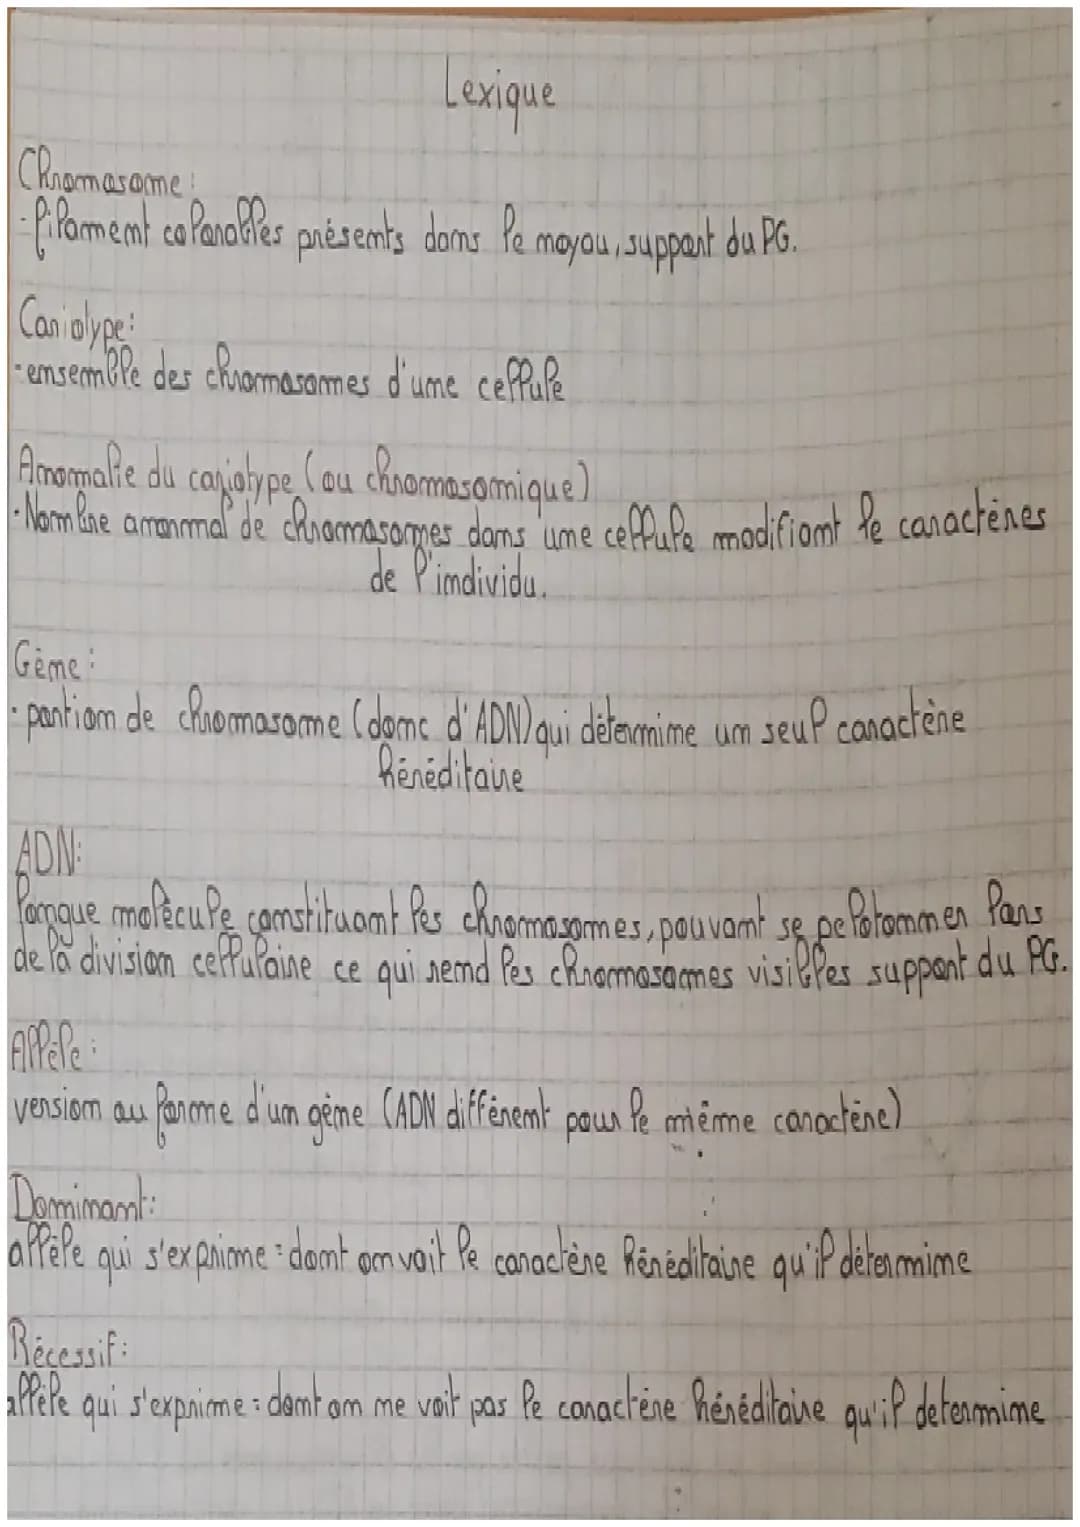 Lexique
Chromosome:
- filament colorables présents dans le noyau, support du PG.
Cariotype:
- ensemble des chromosomes d'une cellule
Anomalie du cariotype (ou chromosomique)
- Nombre anormal de chromosomes dans une cellule modifiant le caractères
de l'individu.
Gène:
- portion de chromosome (donc d'ADN) qui détermine un seul caractère
héréditaire
ADN:
longue molécule constituant les chromosomes, pouvant se pelotonner lors
de la division cellulaire ce qui rend les chromosomes visibles support du PG.
Allèle:
version ou forme d'un gène (ADN différent pour le même caractère)
Dominant:
allèle qui s'exprime = dont on voit le caractère héréditaire qu'il détermine
Récessif:
allèle qui s'exprime = dont on ne voit pas le caractère héréditaire qu'il determine